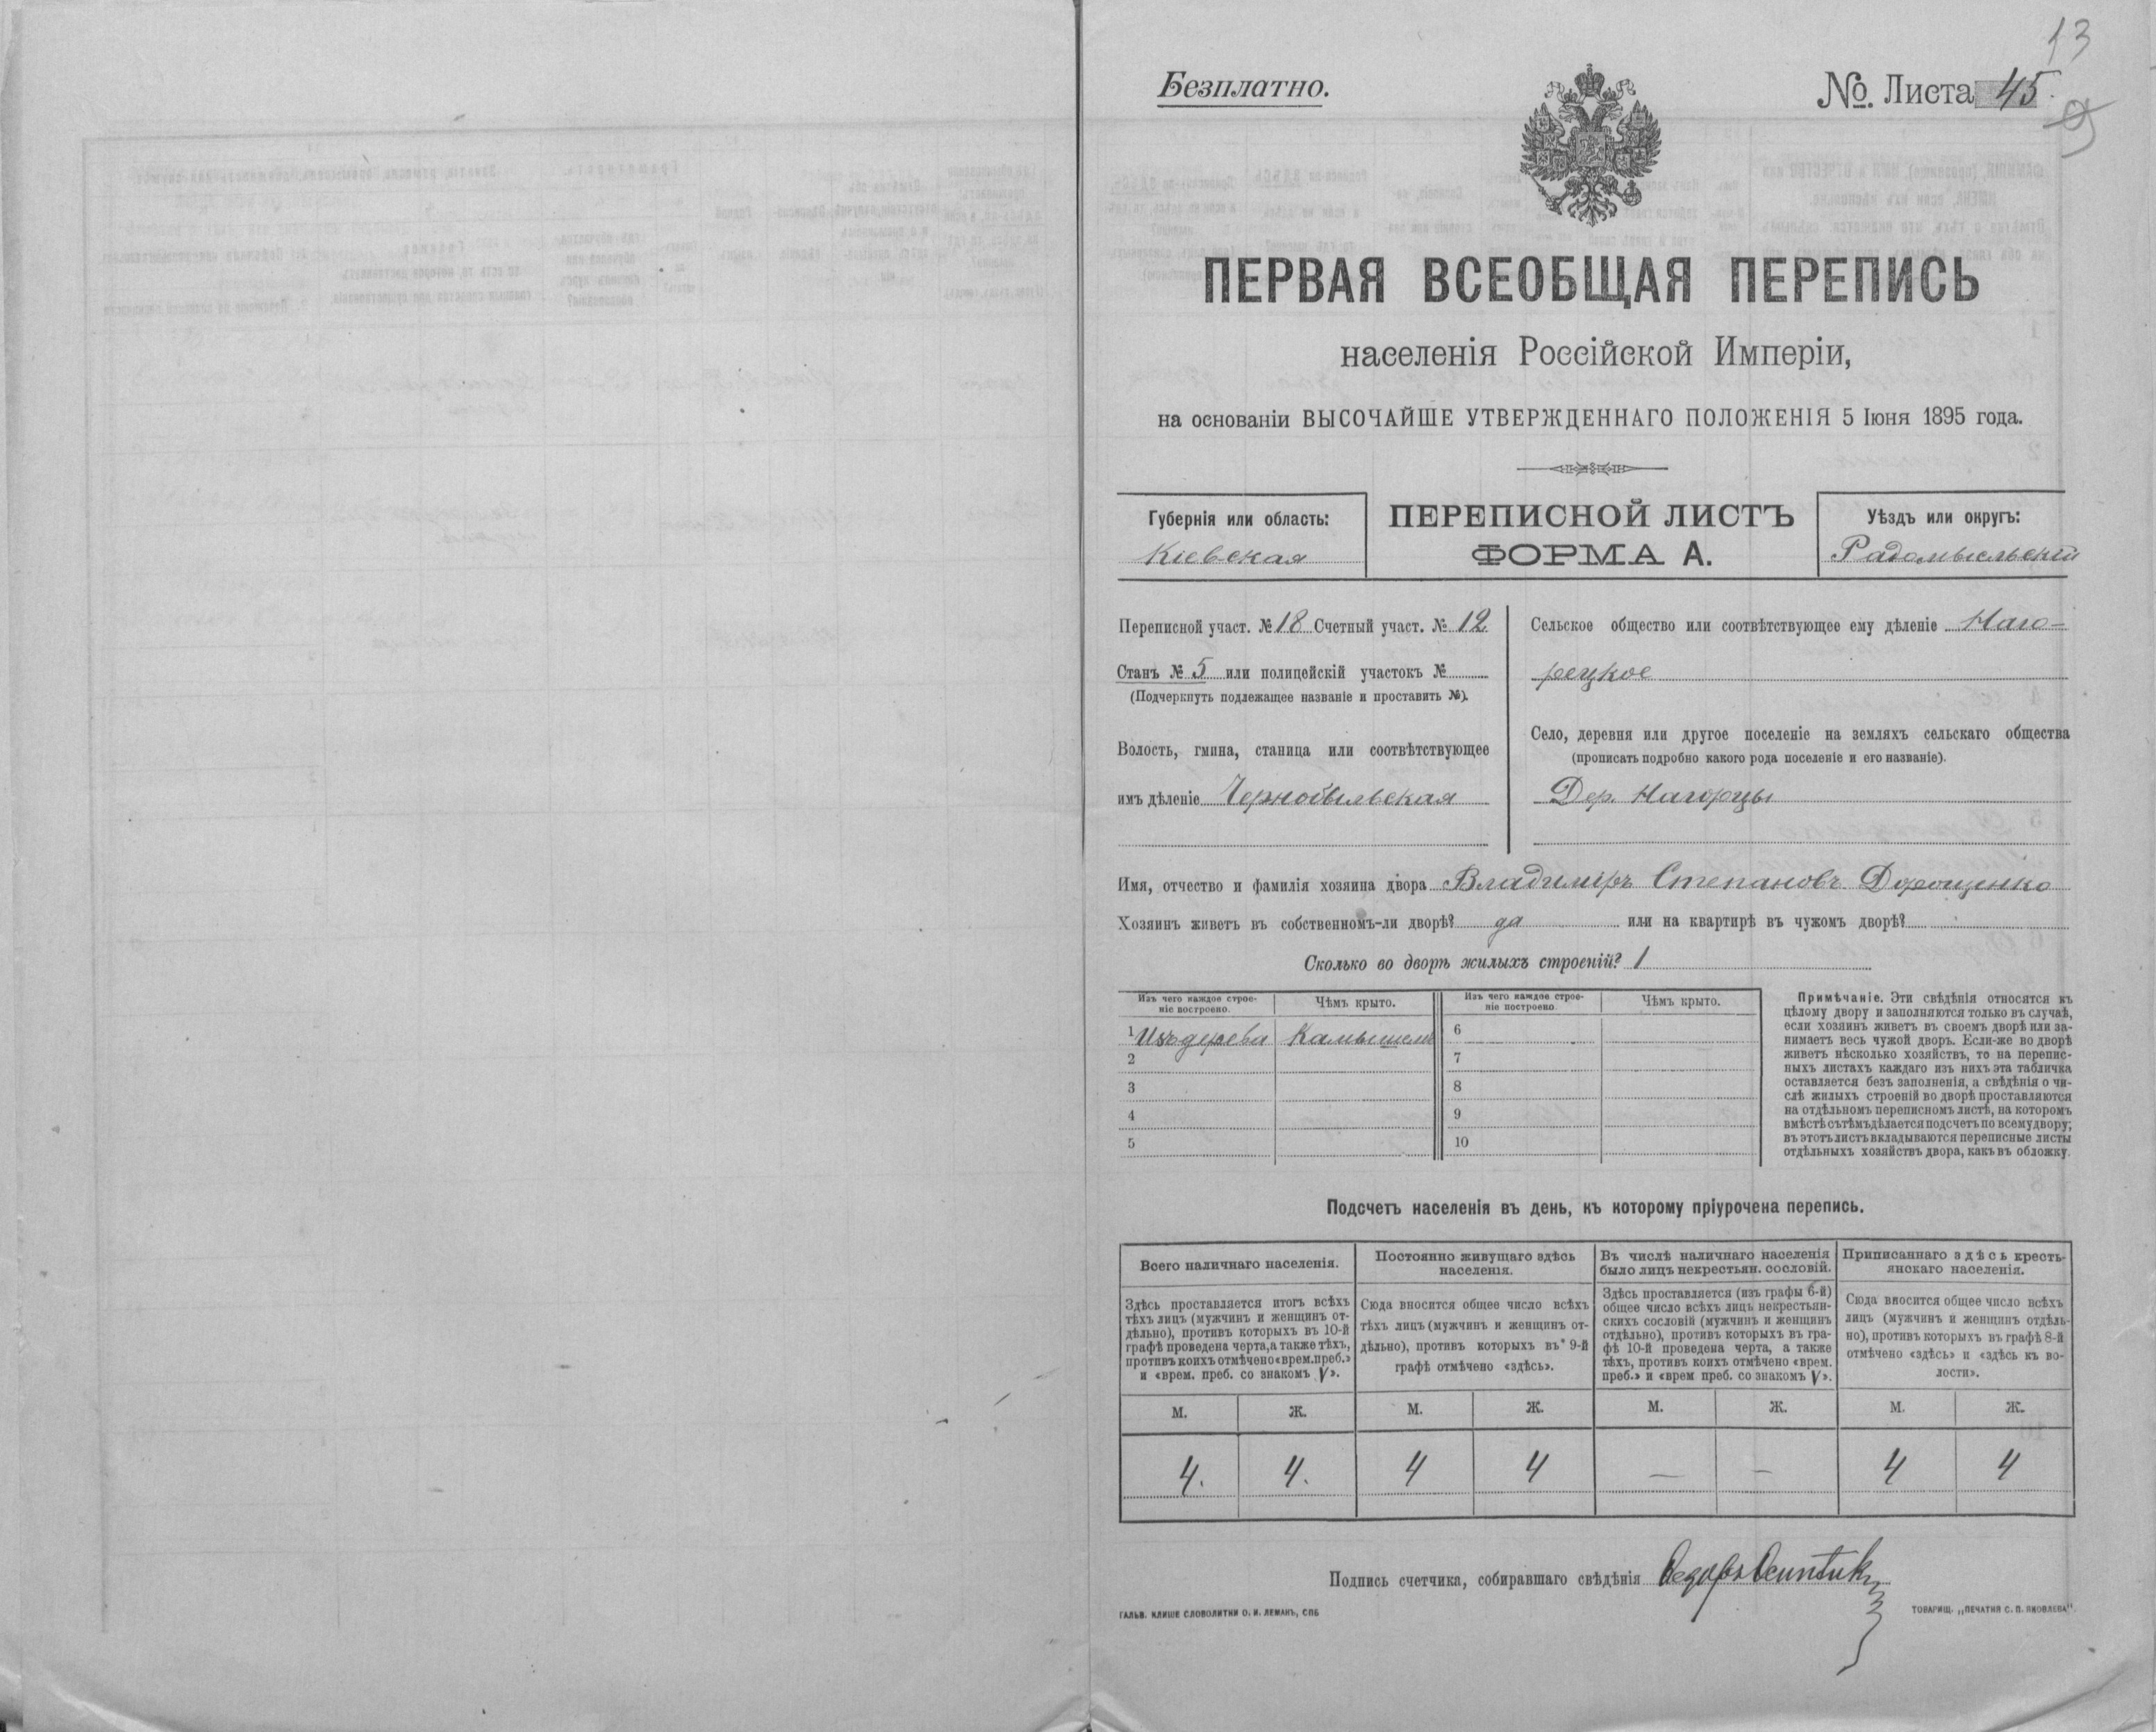 13
Безплатно.
№. Листа 45
9
ПЕРВАЯ ВСЕОБЩАЯ ПЕРЕПИСЬ
населенія Россійской Имперіи,
на основаніи ВЫСОЧАЙШЕ УТВЕРЖДЕННАГО ПОЛОЖЕНІЯ 5 Іюня 1895 года.
Губернія или область:
Кіевская
ПЕРЕПИСНОЙ ЛИСТЪ
ФОРМА А.
Уѣздъ или округъ:
Радомысльскій
Переписной участ. № 18 Счетный участ. № 12
Станъ № 5 или полицейскій участокъ №
(Подчеркнуть подлежащее названіе и проставить №).
Волость, гмина, станица или соотвѣтствующее
имъ дѣленіе Чернобыльская
Сельское общество или соотвѣтствующее ему дѣленіе Наго-
рецкое
Село, деревня или другое поселеніе на земляхъ сельскаго общества
(прописать подробно какого рода поселеніе и его названіе).
Дер. Нагорцы
Имя, отчество и фамилія хозяина двора Владимиръ Степановъ Дорощенко
Хозяинъ живетъ въ собственномъ-ли дворѣ? да или на квартирѣ въ чужомъ дворѣ?
Сколько во дворѣ жилыхъ строеній? 1
Изъ чего каждое строе-
ніе построено.
Чѣмъ крыто.
Изъ чего каждое строе-
ніе построено
Чѣмъ крыто.
1 Изъ дерева Камышемъ 6
2 7
3 8
4 9
5 10
Примѣчаніе. Эти свѣдѣнія относятся къ
цѣлому двору и заполняются только въ случаѣ,
если хозяинъ живетъ въ своемъ дворѣ или за-
нимаетъ весь чужой дворъ. Если-же во дворѣ
живетъ нѣсколько хозяйствъ, то на перепис-
ныхъ листахъ каждаго изъ нихъ эта табличка
оставляется безъ заполненія, а свѣдѣнія о чи-
слѣ жилыхъ строеній во дворѣ проставляются
на отдѣльномъ переписномъ листѣ, на которомъ
вмѣстѣ съ тѣмъ дѣлается подсчетъ по всему двору;
въ этотъ листъ вкладываются переписные листы
отдѣльныхъ хозяйствъ двора, какъ въ обложку.
Подсчетъ населенія въ день, къ которому пріурочена перепись.
Всего наличнаго населенія.
Постоянно живущаго здѣсь
населенія.
Въ числѣ наличнаго населенія
было лицъ некрестьян. сословій.
Приписаннаго здѣсь кресть-
янскаго населенія.
Здѣсь проставляется итогъ всѣхъ
тѣхъ лицъ (мужчинъ и женщинъ от-
дѣльно), противъ которыхъ въ 10-й
графѣ проведена черта, а также тѣхъ,
противъ коихъ отмѣчено «врем. преб.»
и «врем. преб. со знакомъ V».
Сюда вносится общее число всѣхъ
тѣхъ лицъ (мужчинъ и женщинъ от-
дѣльно), противъ которыхъ въ 9-й
графѣ отмѣчено «здѣсь».
Здѣсь проставляется (изъ графы 6-й)
общее число всѣхъ лицъ некрестьян-
скихъ сословій (мужчинъ и женщинъ
отдѣльно), противъ которыхъ въ гра-
фѣ 10-й проведена черта, а также
тѣхъ, противъ коихъ отмѣчено «врем.
преб.» и «врем преб. со знакомъ V».
Сюда вносится общее число всѣхъ
лицъ (мужчинъ и женщинъ отдѣль-
но), противъ которыхъ въ графѣ 8-й
отмѣчено «здѣсь» и «здѣсь къ во-
лости».
М. Ж. М. Ж. М. Ж. М. Ж.
4. 4. 4 4 — — 4 4
Подпись счетчика, собиравшаго свѣдѣнія
ГАЛЬВ. КЛИШЕ СЛОВОЛИТНИ О. И. ЛЕМАНЪ, СПБ
ТОВАРИЩ. „ПЕЧАТНЯ С. П. ЯКОВЛЕВА"